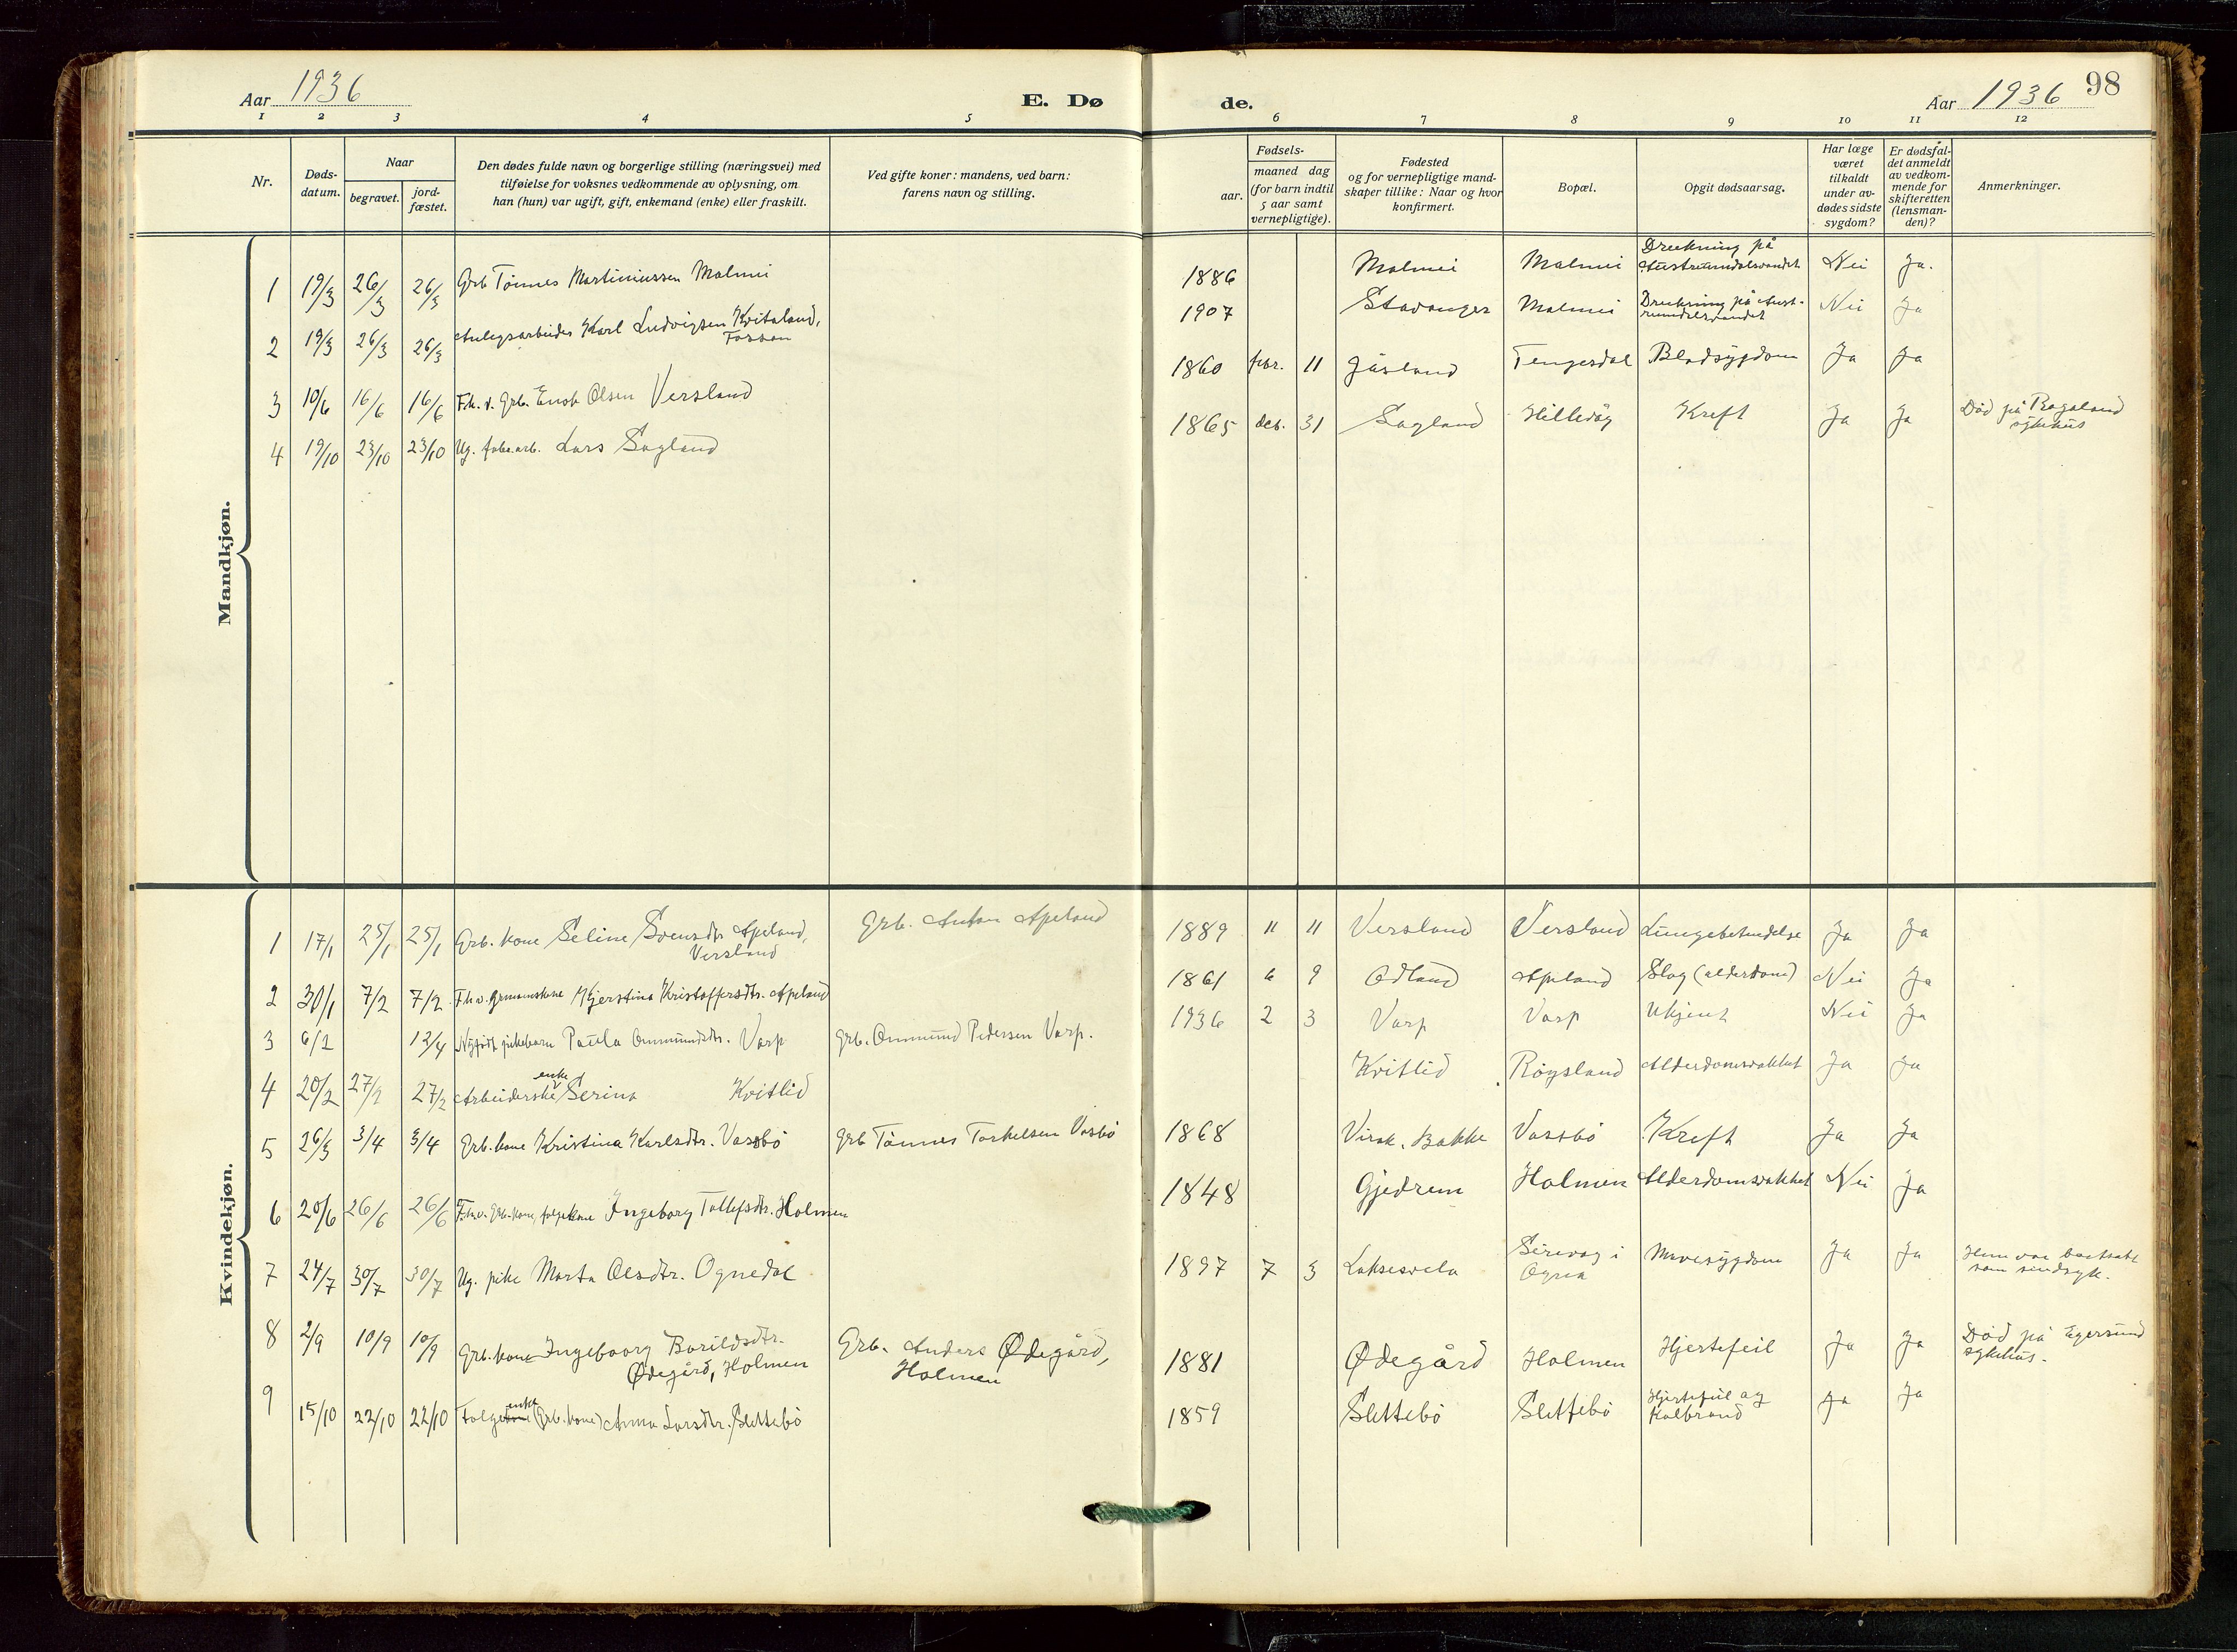 Aar 1936
E. Dø
de.
Aar 1936
98
1 2 3 4 5 6 7 8 9 10 11 12
Nr.
Døds-
datum.
Naar
begravet.
jord-
fæstet.
Den dødes fulde navn og borgerlige stilling (næringsvei) med
tilføielse for voksnes vedkommende av oplysning, om
han (hun) var ugift, gift, enkemand (enke) eller fraskilt.
Ved gifte koner: mandens, ved barn:
farens navn og stilling.
Fødsels-
aar.
maaned dag
(for barn indtil
5 aar samt
vernepligtige).
Fødested
og for vernepligtige mand-
skaper tillike: Naar og hvor
konfirmert.
Bopæl.
Opgit dødsaarsag.
Har læge
været
tilkaldt
under av-
dødes sidste
sygdom?
Er dødsfal-
det anmeldt
av vedkom-
mende for
skifteretten
(lensman-
den)?
Anmerkninger.
Mandkjøn.
1 19/3 26/3 26/3 Grb Tönnes Martiniussen Malmei 1886 Malmei Malmei Drukning på
Austrumdalsvandet Nei Ja.
2 19/3 26/3 26/3 Anlegsarbeider Karl Ludvigsen Kvitaland, 1907 Stavanger Malmei Drukning på Aust-
rumdalsvandet Nei Ja
3 10/6 16/6 16/6 F.h.v. Grb. Enok Olsen Versland 1860 febr. 11 Gåsland Tengesdal Blodsygdom Ja Ja
4 19/10 23/10 23/10 Ug. Lars Sagland 1865 des. 31 Sagland Hilleväg Kreft Ja Ja Död på Rogaland
sykehus
Kvindekjøn.
1 17/1 25/1 25/1 Grb. kone Seline Svensdtr Apeland,
Versland Grb. Anton Apeland 1889 11 11 Versland Versland Lungebetendelse Ja Ja
2 30/1 7/2 7/2 F.h.v. Kjerstina Kristoffersdtr. Apeland 1861 6 9 Ödland Apeland Slag (alderdom) Nei Ja
3 6/2 12/4 Nyfødt pikebarn Paula Ommundsdtr. Varp Grb. Ommund Pedersen Varp. 1936 2 3 Varp Varp Ukjent Nei Ja
4 20/2 27/2 27/2 Arbeiderske enke Serina Kvitlid Kvitlid Röysland Alderdomsvakhet Ja Ja
5 26/3 3/4 3/4 Grb. kone Kristina Karlsdtr. Vassbö Grb Tönnes Torkelsen Vasbö 1868 Virak. Bakke Vassbö Kreft Ja Ja
6 20/6 26/6 26/6 F.h.v. Grb. kone, folgekone Ingeborg Tollefsdtr. Holmen 1848 Gjedrem Holmen Alderdomsvakhet Nei Ja
7 24/7 30/7 30/7 Ug. pike Marta Olsdtr. Ognedal 1897 7 3 Laksesvela Sirevag i
Ogna Mavesygdom Ja Ja Hun var bortsatt
som sindsyk.
8 2/9 10/9 10/9 Grb. kone Ingeborg Borildsdtr.
Ødegård, Holmen Grb. Anders Ødegård,
Holmen 1881 Ødegård Holmen Hjertefeil Ja Ja Död på Egersund
sykehus.
9 15/10 22/10 22/10 Folgekone enke (Grb. kone) Anna Larsdtr. Slettebö 1859 Slettebö Slettebö Hjertefeil og
Kolbrand Ja Ja